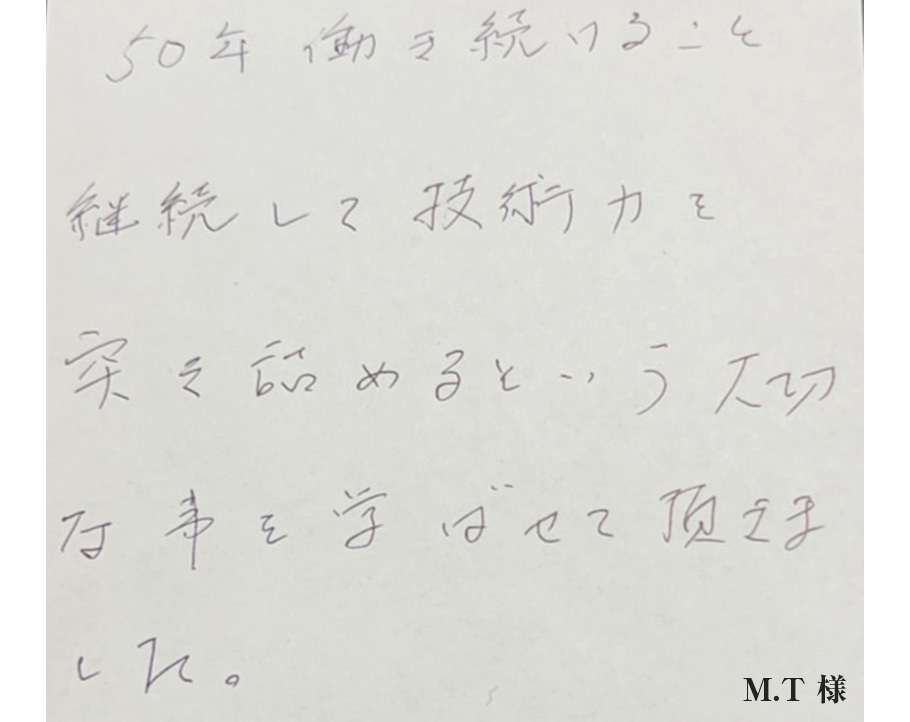 50年 働き続けること
継続して技術力を
突き詰めるという大切
な事を学ばせて頂きま
した。
M.T 様